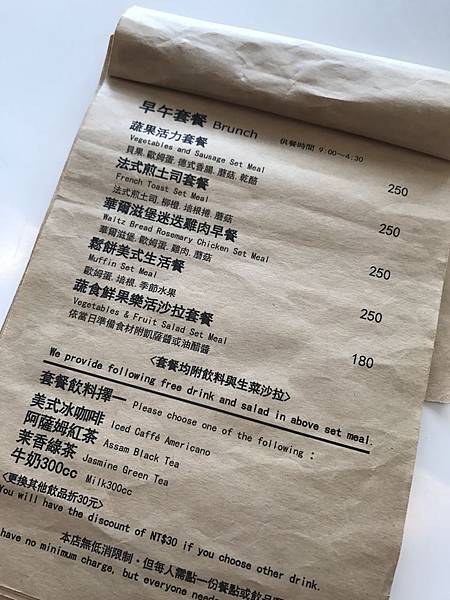 早午套餐 Brunch 供餐時間 9:00~4:30
蔬果活力套餐
Vegetables and Sausage Set Meal 250
貝果.歐姆蛋.德式香腸.蘑菇.乾酪
法式煎土司套餐
French Toast Set Meal 250
法式煎土司.柳橙.培根捲.蘑菇
華爾滋堡迷迭雞肉早餐
Waltz Bread Rosemary Chicken Set Meal 250
華爾滋堡.歐姆蛋.雞肉.蘑菇
鬆餅美式生活餐
Muffin Set Meal 250
歐姆蛋.培根.季節水果
蔬食鮮果樂活沙拉套餐
Vegetables & Fruit Salad Set Meal 180
依當日準備食材附凱薩醬或油醋醬
<套餐均附飲料與生菜沙拉>
We provide following free drink and salad in above set meal.
套餐飲料擇一 Please choose one of the following :
美式冰咖啡 Iced Caffé Americano
阿薩姆紅茶 Assam Black Tea
茉香綠茶 Jasmine Green Tea
牛奶300cc Milk300cc
<更換其他飲品折30元>
You will have the discount of NT$30 if you choose other drink.
本店無低消限制，但每人需點一份餐點或飲品
have no minimum charge, but everyone needs